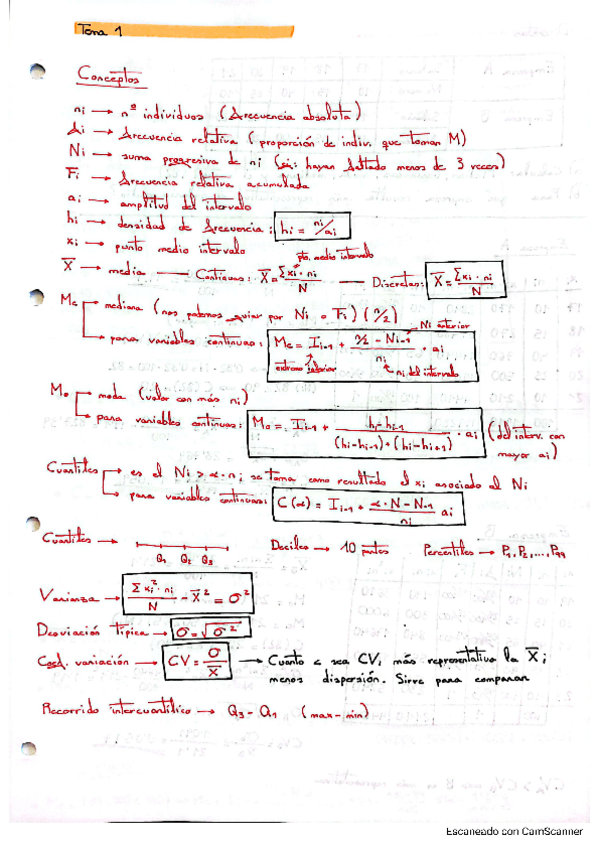 Tema 1
Conceptos
ni → nº individuos (frecuencia absoluta)
fi → frecuencia relativa (proporción de indiv. que toman M)
Ni → suma progresiva de ni (ej: hayan faltado menos de 3 veces)
Fi → frecuencia relativa acumulada
ai → amplitud del intervalo
hi → densidad de frecuencia: hi = ni/ai
xi → punto medio intervalo
pto. medio intervalo
X̄ → media → Continuas: X̄ = Σxi·ni / N → Discretas: X̄ = Σxi·ni / N
Me → mediana (nos podemos guiar por Ni o Fi) (n/2)
Ni anterior
→ para variables continuas: Me = Ii-1 + (n/2 - Ni-1) / ni · ai
extremo inferior
ni del intervalo
Mo → moda (valor con más ni)
→ para variables continuas: Mo = Ii-1 + (hi-hi-1) / ((hi-hi-1)+(hi-hi+1)) · ai (del interv. con mayor ai)
Cuantiles → es el Ni > α·n; se toma como resultado el xi asociado al Ni
→ para variables continuas: C(α) = Ii-1 + (α·N - Ni-1) / ni ai
Cuartiles → Q1 Q2 Q3 Deciles → 10 puntos Percentiles → P1, P2, ..., P99
Varianza → Σxi²·ni / N - X̄² = σ²
Desviación Típica → σ = √σ²
Coef. variación → CV = σ / X̄ → Cuanto < sea CV, más representativa la X̄;
menos dispersión. Sirve para comparar
Recorrido intercuartílico → Q3 - Q1 (max-min)
Escaneado con CamScanner